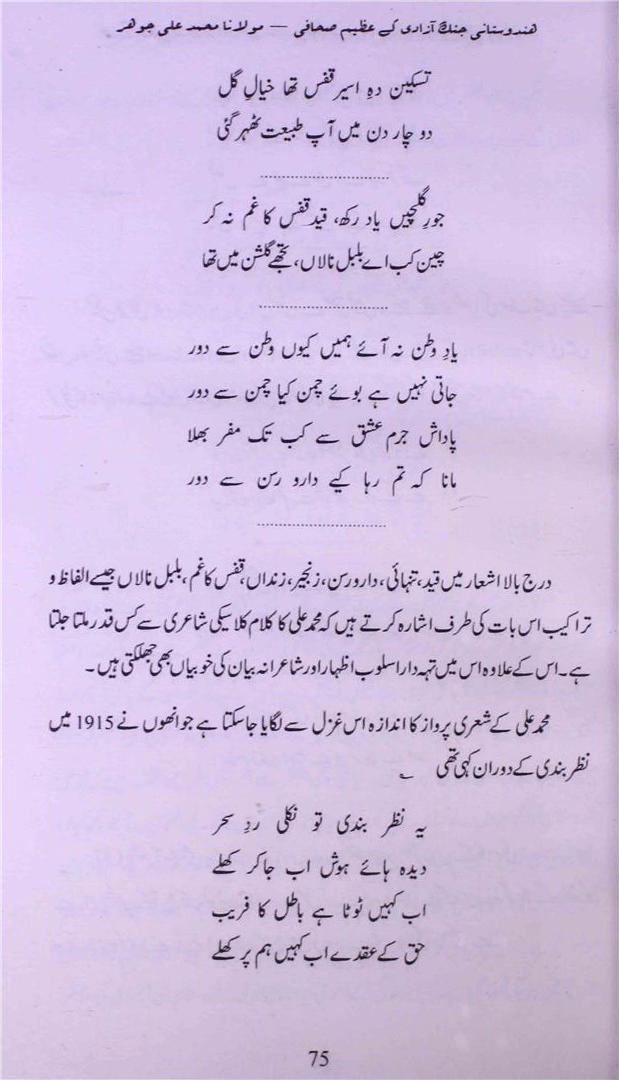 ھندوستانی جنگ آزادی کے عظیم صحافی — مولانا محمد علی جوھر
تسکین دہِ اسیر قفس تھا خیالِ گل
دو چار دن میں آپ طبیعت ٹھہر گئی
جورِ گلچیں یاد رکھ، قید قفس کا غم نہ کر
چین کب اے بلبل نالاں، تجھے گلشن میں تھا
یادِ وطن نہ آئے ہمیں کیوں وطن سے دور
جاتی نہیں ہے بوئے چمن کیا چمن سے دور
پاداش جرم عشق سے کب تک مفر بھلا
مانا کہ تم رہا کیے دارو رسن سے دور
درج بالا اشعار میں قید، تنہائی، دارورسن، زنجیر، زنداں، قفس کا غم، بلبل نالاں جیسے الفاظ و
تراکیب اس بات کی طرف اشارہ کرتے ہیں کہ محمد علی کا کلام کلاسیکی شاعری سے کس قدر ملتا جلتا
ہے۔ اس کے علاوہ اس میں تہہ دار اسلوب اظہار اور شاعرانہ بیان کی خوبیاں بھی جھلکتی ہیں۔
محمد علی کے شعری پرواز کا اندازہ اس غزل سے لگایا جاسکتا ہے جو انھوں نے 1915 میں
نظر بندی کے دوران کہی تھی ؎
یہ نظر بندی تو نکلی ردِ سحر
دیدہ ہائے ہوش اب جا کر کھلے
اب کہیں ٹوٹا ہے باطل کا فریب
حق کے عقدے اب کہیں ہم پر کھلے
75